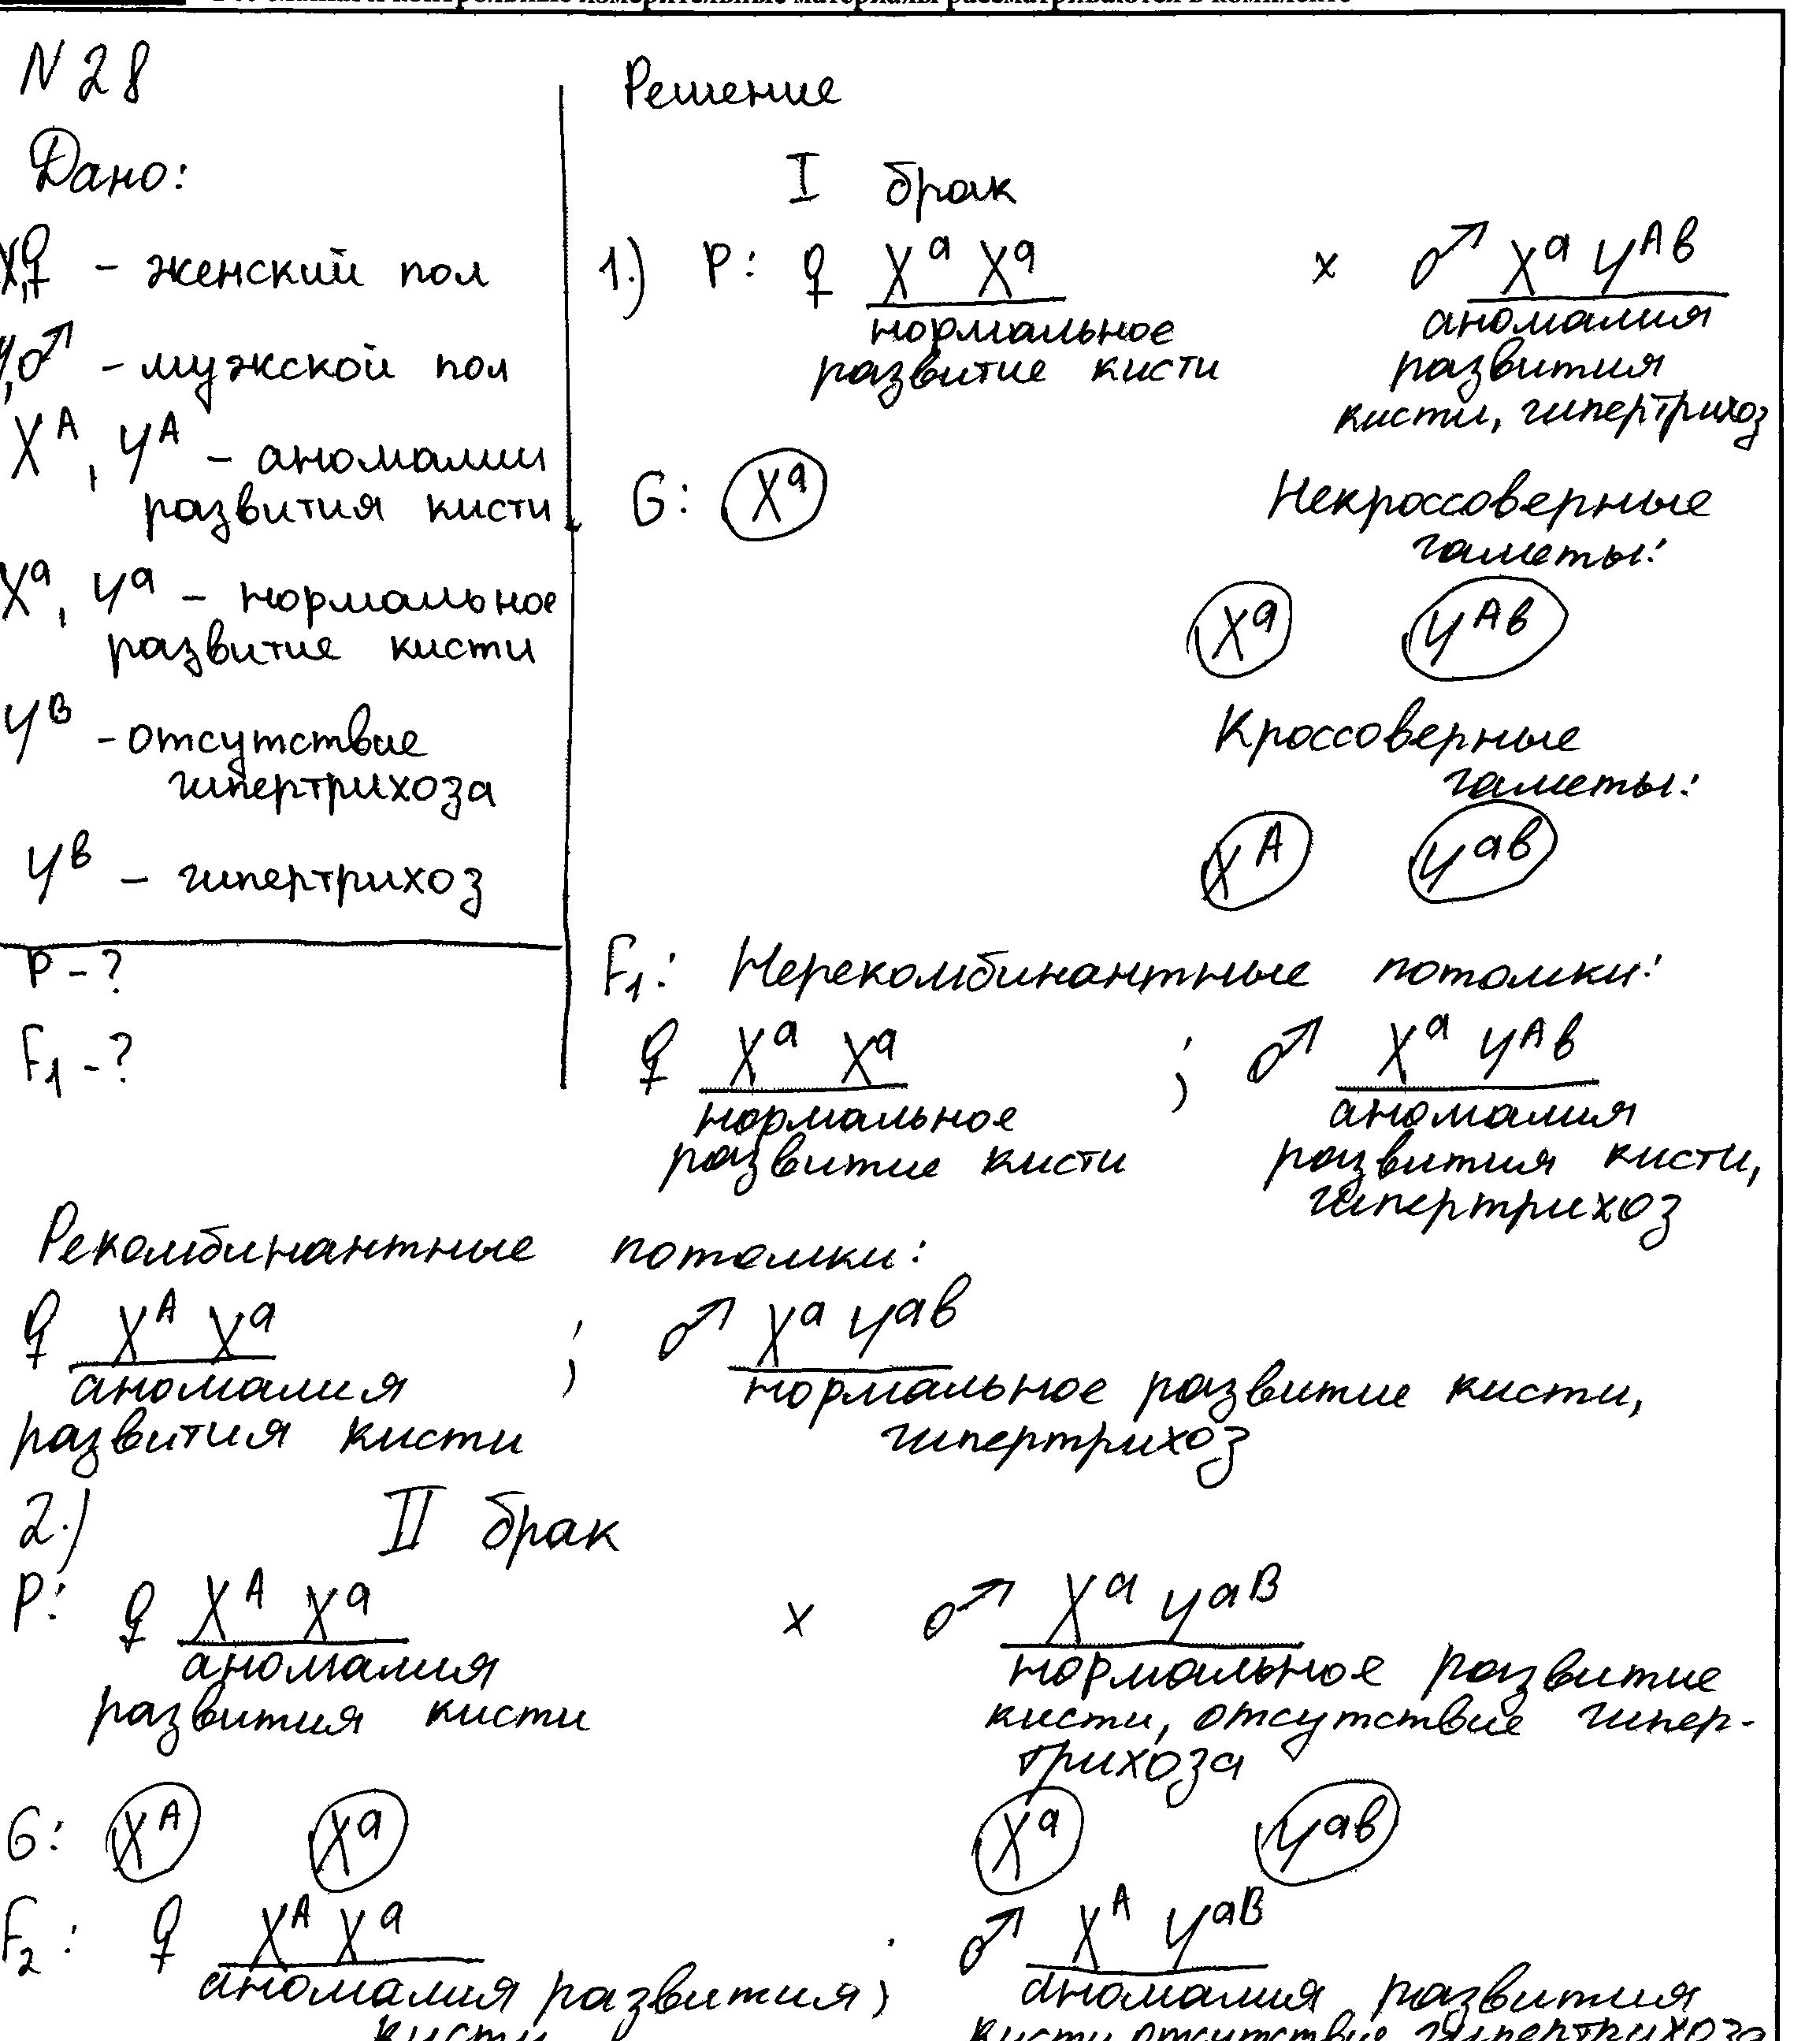 Все бланки и контрольные измерительные материалы рассматриваются в комплекте
N 28
Дано:
X,♀ - женский пол
Y,♂ - мужской пол
X^A, Y^A - аномалии
развития кисти
X^a, Y^a - нормальное
развитие кисти
Y^B - отсутствие
гипертрихоза
Y^b - гипертрихоз
P - ?
F1 - ?
Решение
I брак
1.) P: ♀ X^a X^a x ♂ X^a Y^Ab
нормальное
развитие кисти
аномалия
развития
кисти, гипертрихоз
G: X^a
Некроссоверные
гаметы:
X^a Y^Ab
Кроссоверные
гаметы:
X^A Y^ab
F1: Нерекомбинантные потомки:
♀ X^a X^a ; ♂ X^a Y^Ab
нормальное
развитие кисти
аномалия
развития кисти,
гипертрихоз
Рекомбинантные потомки:
♀ X^A X^a ; ♂ X^a Y^ab
аномалия
развития кисти
нормальное развитие кисти,
гипертрихоз
2.) II брак
P: ♀ X^A X^a x ♂ X^a Y^aB
аномалия
развития кисти
нормальное развитие
кисти, отсутствие гипер-
трихоза
G: X^A X^a X^a Y^ab
F2: ♀ X^A X^a ; ♂ X^A Y^aB
аномалия развития
кисти
аномалия развития
кисти, отсутствие гипертрихоза